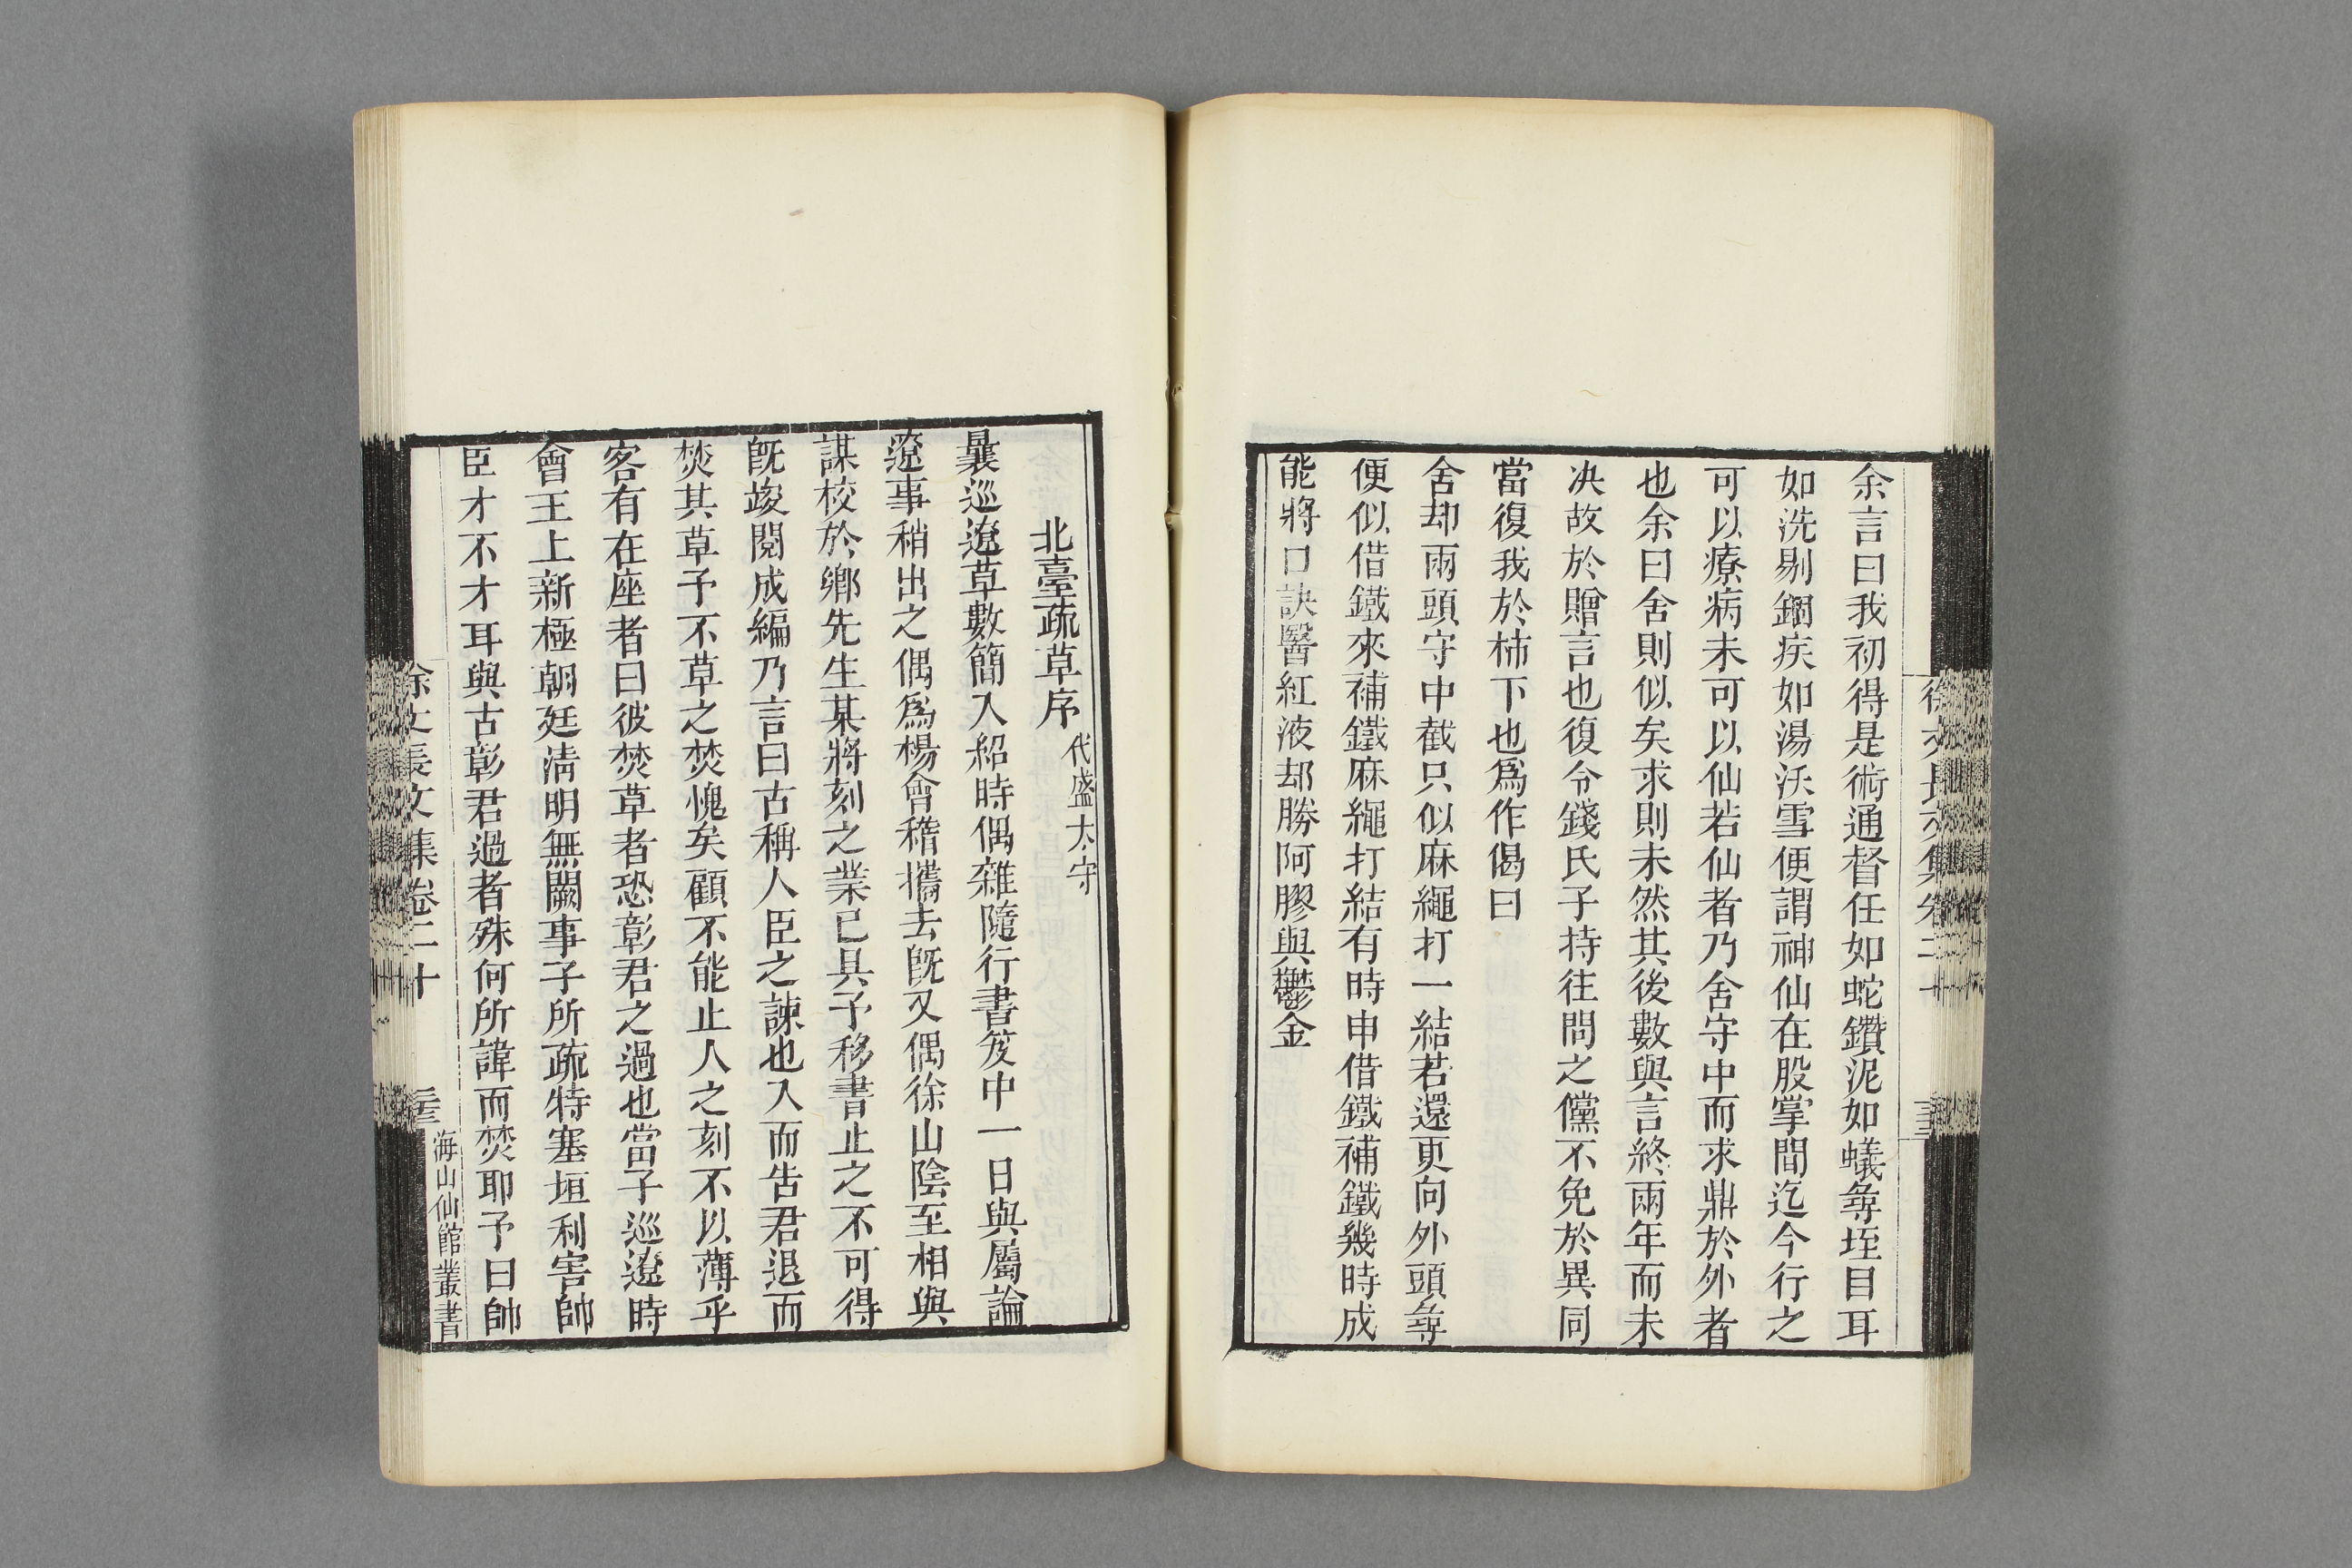 余言曰我初得是術通督任如蛇鑽泥如蟻尋垤目耳
如洗剔錮疾如湯沃雪便謂神仙在股掌間迄今行之
可以療病未可以仙若仙者乃舍守中而求鼎於外者
也余曰舍則似矣求則未然其後數與言終兩年而未
决故於贈言也復令錢氏子持往問之儻不免於異同
當復我於柿下也爲作偈曰
舍却兩頭守中截只似麻繩打一結若還更向外頭尋
便似借鐵來補鐵麻繩打結有時申借鐵補鐵幾時成
能將口訣醫紅液却勝阿膠與鬱金
北臺疏草序 代盛太守
曩巡遼草數簡入紹時偶雜隨行書笈中一日與屬論
遼事稍出之偶爲楊會稽攜去旣又偶徐山陰至相與
謀校於鄉先生某將刻之業已具予移書止之不可得
旣竣閱成編乃言曰古稱人臣之諫也入而告君退而
焚其草予不草之焚愧矣顧不能止人之刻不以薄乎
客有在座者曰彼焚草者恐彰君之過也當子巡遼時
會王上新極朝廷淸明無闕事子所疏特塞垣利害帥
臣才不才耳與古彰君過者殊何所諱而焚耶予曰帥
徐文長文集卷二十
海山仙館叢書